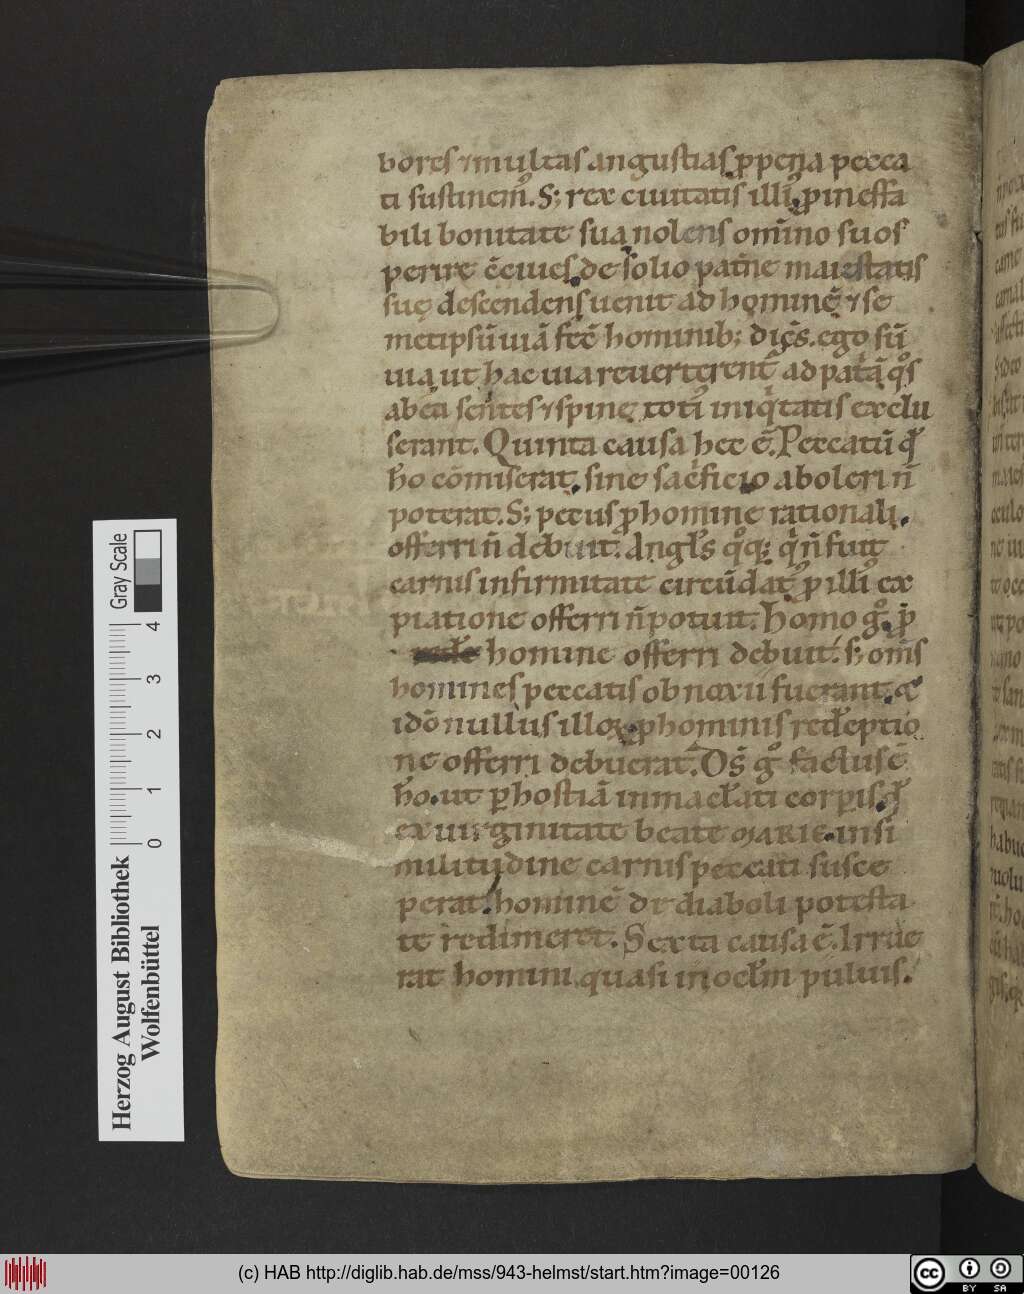 bores ⁊ multas angustias ꝓ pena pecca
ti sustinem̃. S; rex ciuitatis illiꝰ, ꝓ ineffa
bili bonitate sua, nolens om̅ino suos
perire c̅ciues, de solio pat̃ne maiestatis
sue descendens uenit ad homine̅ ⁊ se
metipsu̅ uia̅ fec̅ hominib; dice̅s. ego su̅
uia, ut hac uia reuerterent᷑ ad pat̃a̅ qͦs
ab ea sentes ⁊ spine totiꝰ iniq̇tatis exclu
serant. Quinta causa hec e̅. Peccatu̅ qđ
h̅o co̅miserat, sine sac̓ficio aboleri n̅
poterat. S; pecus ꝓ homine rationali,
offerri n̅ debuit. Angl̅s qͦq; q̇ n̅ fuit
carnis infirmitate circu̅datꝰ, ꝓ illiꝰ ex
piatione offerri n̅ potuit. Homo gͦ, ꝓ
homine offerri debuit. s; om̅s
homines peccatis obnoxii fuerant. ⁊
ido̅ nullus illoꝝ ꝓ hominis rede̅ptio
ne offerri debuerat. Ds̅ gͦ factus e̅
h̅o. ut ꝑ hostia̅ inmacl̅ati corꝑis, qđ
ex uirginitate beate MARIE, in si
militudine carnis peccati susce
perat, homine̅ de diaboli potesta
te redimeret. Sexta causa e̅. Irrue
rat homini, quasi in ocl̅m puluis.
Gray Scale
0 1 2 3 4
Herzog August Bibliothek
Wolfenbüttel
(c) HAB http://diglib.hab.de/mss/943-helmst/start.htm?image=00126
cc BY SA